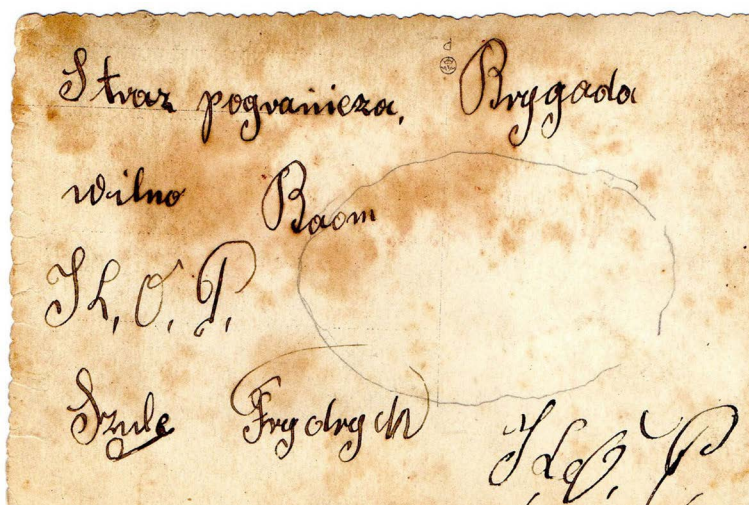 Straz pogranicza, Brygada
Wilno Baon
K. O. P.
Szulc Frydrych
K. O. P.